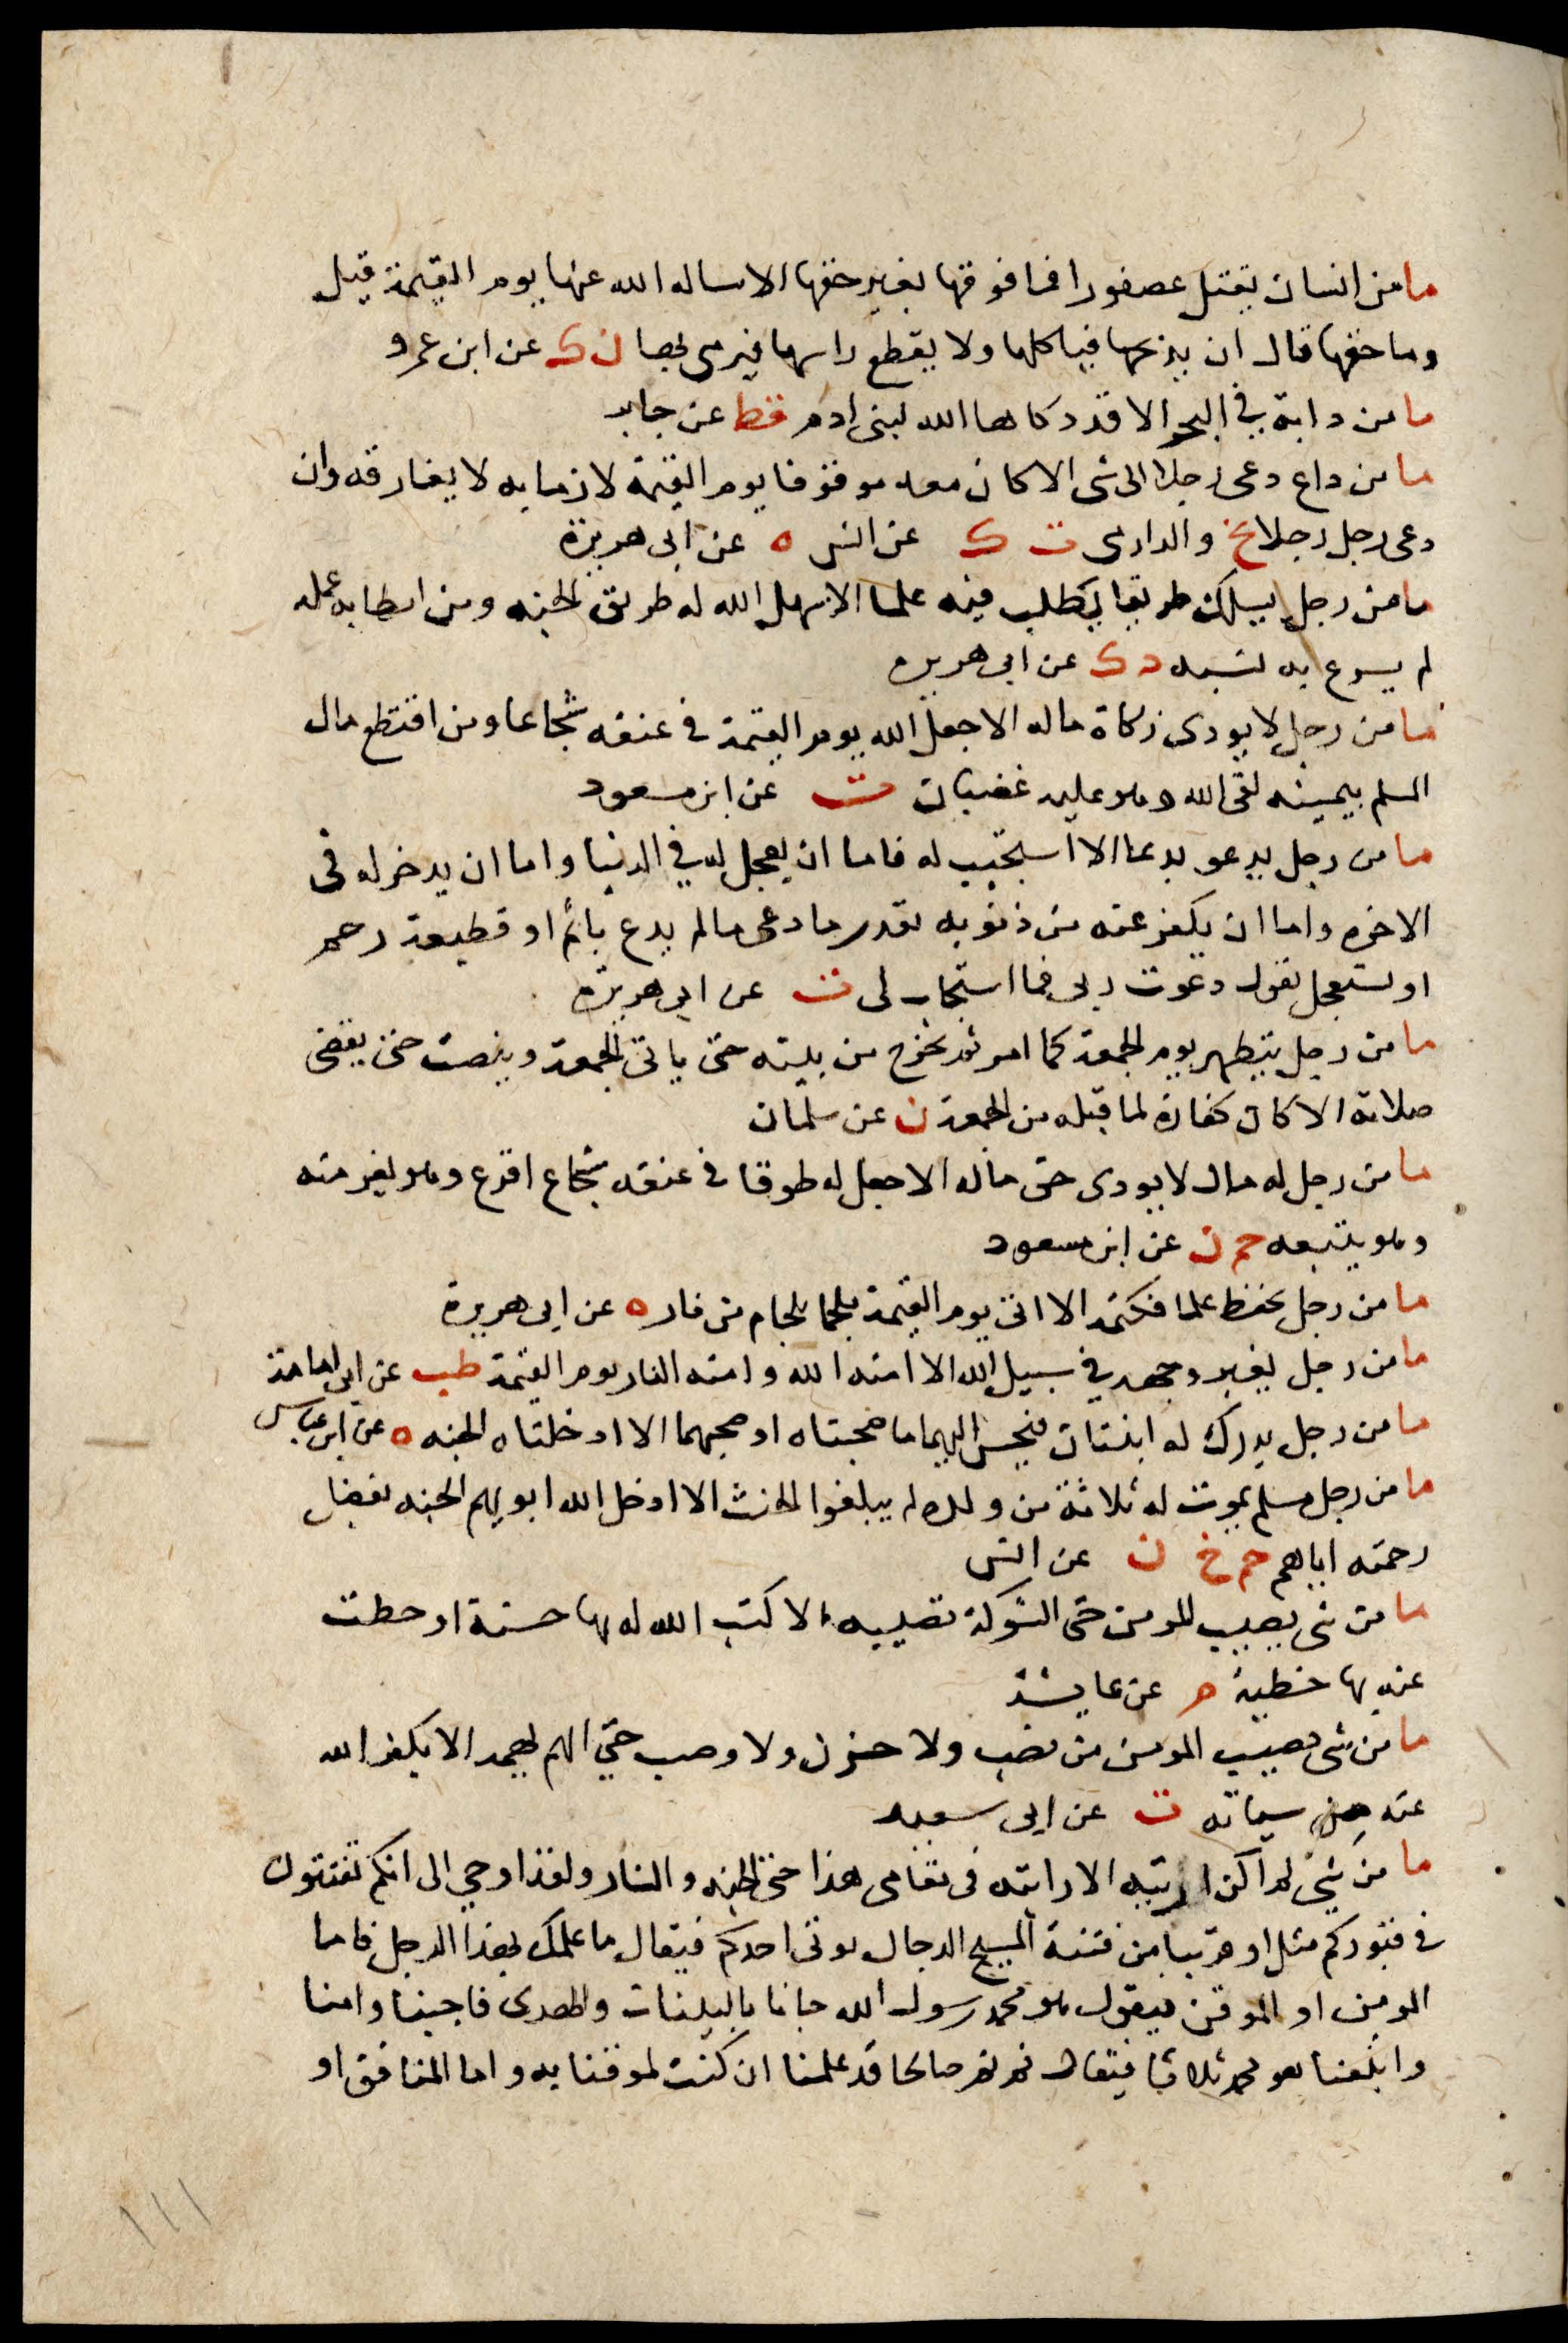 ما من انسان يقتل عصفورا فما فوقها بغير حقها الا ساله الله عنها يوم القيمة قيل
وما حقها قال ان يذبحها فياكلها ولا يقطع راسها فيرمى بها ن ك عن ابن عمرو
ما من دابة في البحر الا قد ذكاها الله لبنى ادم قط عن جابر
ما من داع دعى رجلا الى شى الا كان معه موقوفا يوم القيمة لازما به لا يفارقه وان
دعى رجل رجلا خ والدارمى ت ك عن انس ه عن ابى هريرة
ما من رجل يسلك طريقا يطلب فيه علما الا سهل الله له طريق الجنه ومن ابطا به عمله
لم يسرع به نسبه د ك عن ابى هريره
ما من رجل لا يودى زكاة ماله الا جعل الله يوم القيمة فى عنقه شجاعا ومن اقتطع مال
المسلم بيمينه لقى الله وهو عليه غضبان ت عن ابن مسعود
ما من رجل يدعو بدعا الا استجيب له فاما ان يعجل له في الدنيا واما ان يدخر له فى
الاخره واما ان يكفر عنه من ذنوبه بقدر ما دعى ما لم يدع باثم او قطيعة رحم
او يستعجل يقول دعوت ربى فما استجاب لى ت عن ابى هريرة
ما من رجل يتطهر يوم الجمعة كما امر ثم يخرج من بيته حتى ياتى الجمعة وينصت حتى يقضى
صلاته الا كان كفارة لما قبله من الجمعة ن عن سلمان
ما من رجل له مال لا يودى حق ماله الا جعل له طوقا فى عنقه شجاع اقرع وهو يفر منه
وهو يتبعه حم ن عن ابن مسعود
ما من رجل يحفظ علما فكتمه الا اتى يوم القيمة ملجما بلجام من نار ه عن ابى هريرة
ما من رجل يغبر وجهه في سبيل الله الا امنه الله وامنه النار يوم القيمة طب عن ابى امامة
ما من رجل يدرك له ابنتان فيحسن اليهما ما صحبتاه او صحبهما الا ادخلتاه الجنه ه عن ابن عباس
ما من رجل مسلم يموت له ثلاثة من ولده لم يبلغوا الحنث الا ادخل الله ابويهم الجنه بفضل
رحمته اياهم حم خ ن عن انس
ما من شى يصيب المومن حتى الشوكة تصيبه الا كتب الله له بها حسنة او حطت
عنه بها خطية م عن عايشة
ما من شى يصيب المومن من نصب ولا حزن ولا وصب حتى الهم يهمه الا يكفر الله
عنه من سياته ت عن ابى سعيد
ما من شي لم اكن اريته الا رايته فى مقامى هذا حتى الجنه والنار ولقد اوحي الى انكم تفتنون
فى قبوركم مثل او قريبا من فتنة المسيح الدجال يوتى احدكم فيقال ما علمك بهذا الرجل فاما
المومن او الموقن فيقول هو محمد رسول الله جانا بالبينات والهدى فاجبنا وامنا
واتبعنا هو محمد ثلاثا فيقال نم نم صالحا قد علمنا ان كنت لموقنا به واما المنافق او
١١١